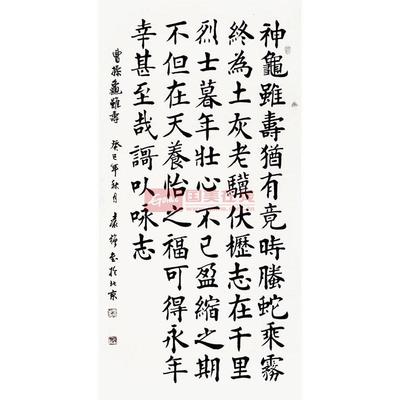 神龜雖壽猶有竟時螣蛇乘霧
終為土灰老驥伏櫪志在千里
烈士暮年壯心不已盈縮之期
不但在天養怡之福可得永年
幸甚至哉謌以咏志
曹操龜雖壽 癸巳年秋月 書於北京
国美在线